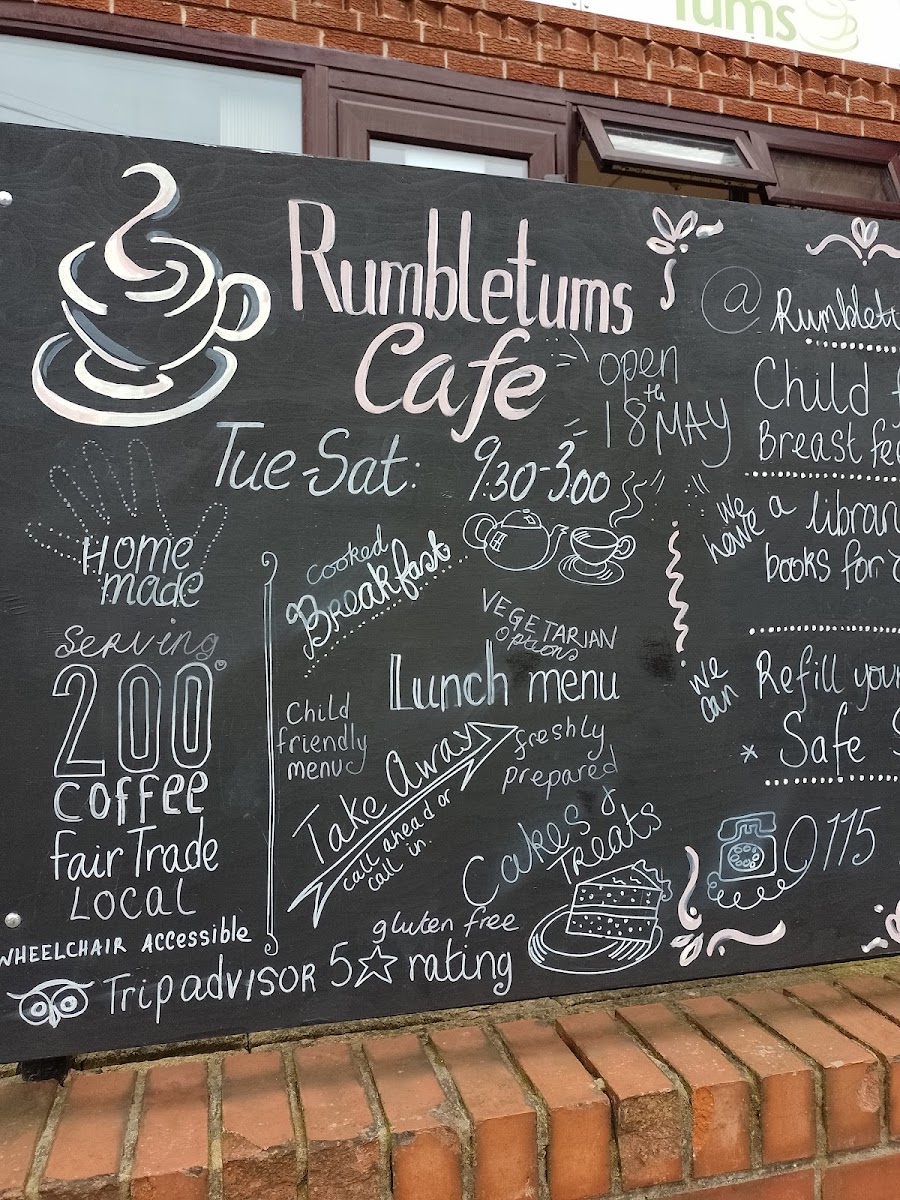 Tums
Rumbletums
Cafe
open
18th MAY
Tue-Sat: 9:30-3:00
HOME
made
Serving
200°
Coffee
fair Trade
LOCAL
WHEELCHAIR ACCESSIBLE
Tripadvisor 5 rating
cooked
Breakfast
VEGETARIAN
options
Lunch menu
Child
friendly
menu
freshly
prepared
Take Away
call ahead or
call in.
Cakes &
Treats
gluten free
@
Child
Breast
we
have a
books for
we
can
Refill your
* Safe
0115